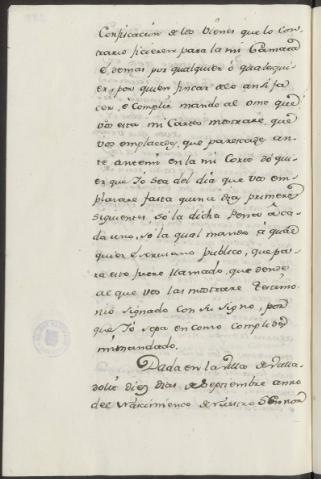 Confiscacion de los vienes que lo con
trario ficieren para la mi Camara
é demas por qualquier ó qualesqui
er, por quien fincar delo ansi fa
cer, é Complir mando al ome que
vos esta mi Carta mostrare, que
vos emplaze, que parezcade an
te ante mi en la mi Corte do qui
er que Yó sea del dia que vos em
plazare fasta quince dias primeros
siguientes, só la dicha pena á ca
da uno, só la qual mando á qual
quier escrivano publico, que pa
ra esto fuere llamado, que dende
al que vos las mostrare testimo
nio signado con su signo, por
que Yó sepa en como complides
mi mandado.
Dada en la villa de Valla
dolid diez dias de Septiembre anno
del Nascimiento de nuestro Sennor